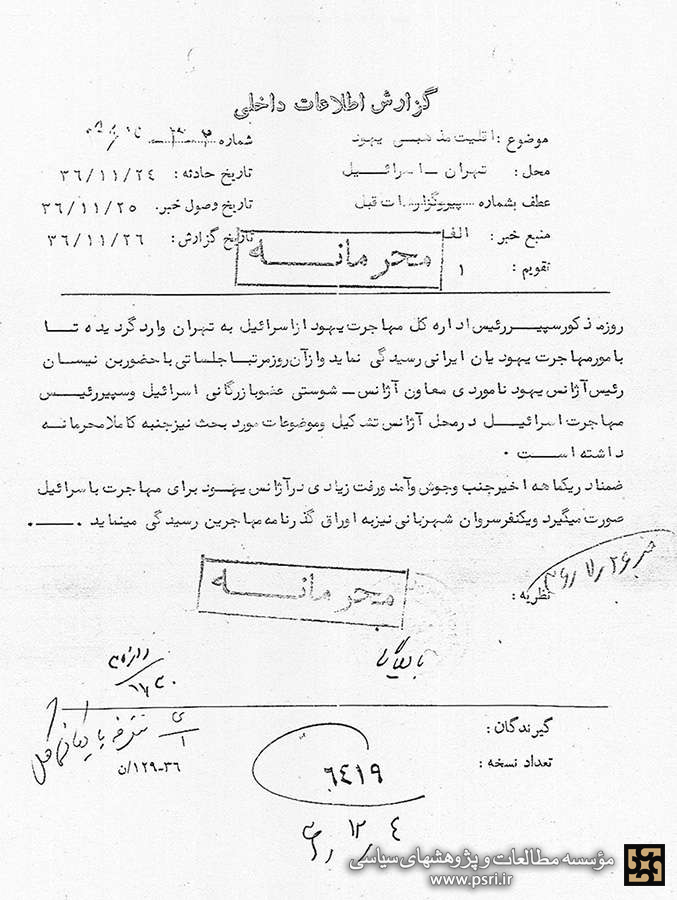 گزارش اطلاعات داخلی
موضوع : اقلیت مذهبی یهود
شماره
محل : تهران ــ اسرائیل
تاریخ حادثه : ۳۶/۱۱/۲۴
عطف بشماره ..... پیروگزارشات قبل
تاریخ وصول خبر. ۳۶/۱۱/۲۵
منبع خبر : الف
تاریخ گزارش : ۳۶/۱۱/۲۶
تقویم : ۱
محرمانه
روزمذکورسپیررئیس اداره کل مهاجرت یهودازاسرائیل به تهران واردگردیده تا
بامورمهاجرت یهودیان ایرانی رسیدگی نمایدوازآن روزمرتباجلساتی باحضوربن نیسان
رئیس آژانس یهود ناموردی معاون آژانس ــ شوستی عضوبازرگانی اسرائیل وسپیررئیس
مهاجرت اسرائیل درمحل آژانس تشکیل وموضوعات مورد بحث نیزجنبه کاملا محرمانه
داشته است .
ضمنادریکماهه اخیرجنب وجوش وآمدورفت زیادی درآژانس یهود برای مهاجرت باسرائیل
صورت میگیرد ویکنفرسروان شهربانی نیزبه اوراق گذرنامه مهاجرین رسیدگی مینماید .
نظریه :
محرمانه
بایگانی
گیرندگان :
تعداد نسخه :
۳۶-۱۲۹/ن
۶۴۱۹
مؤسسه مطالعات و پژوهشهای سیاسی
www.psri.ir